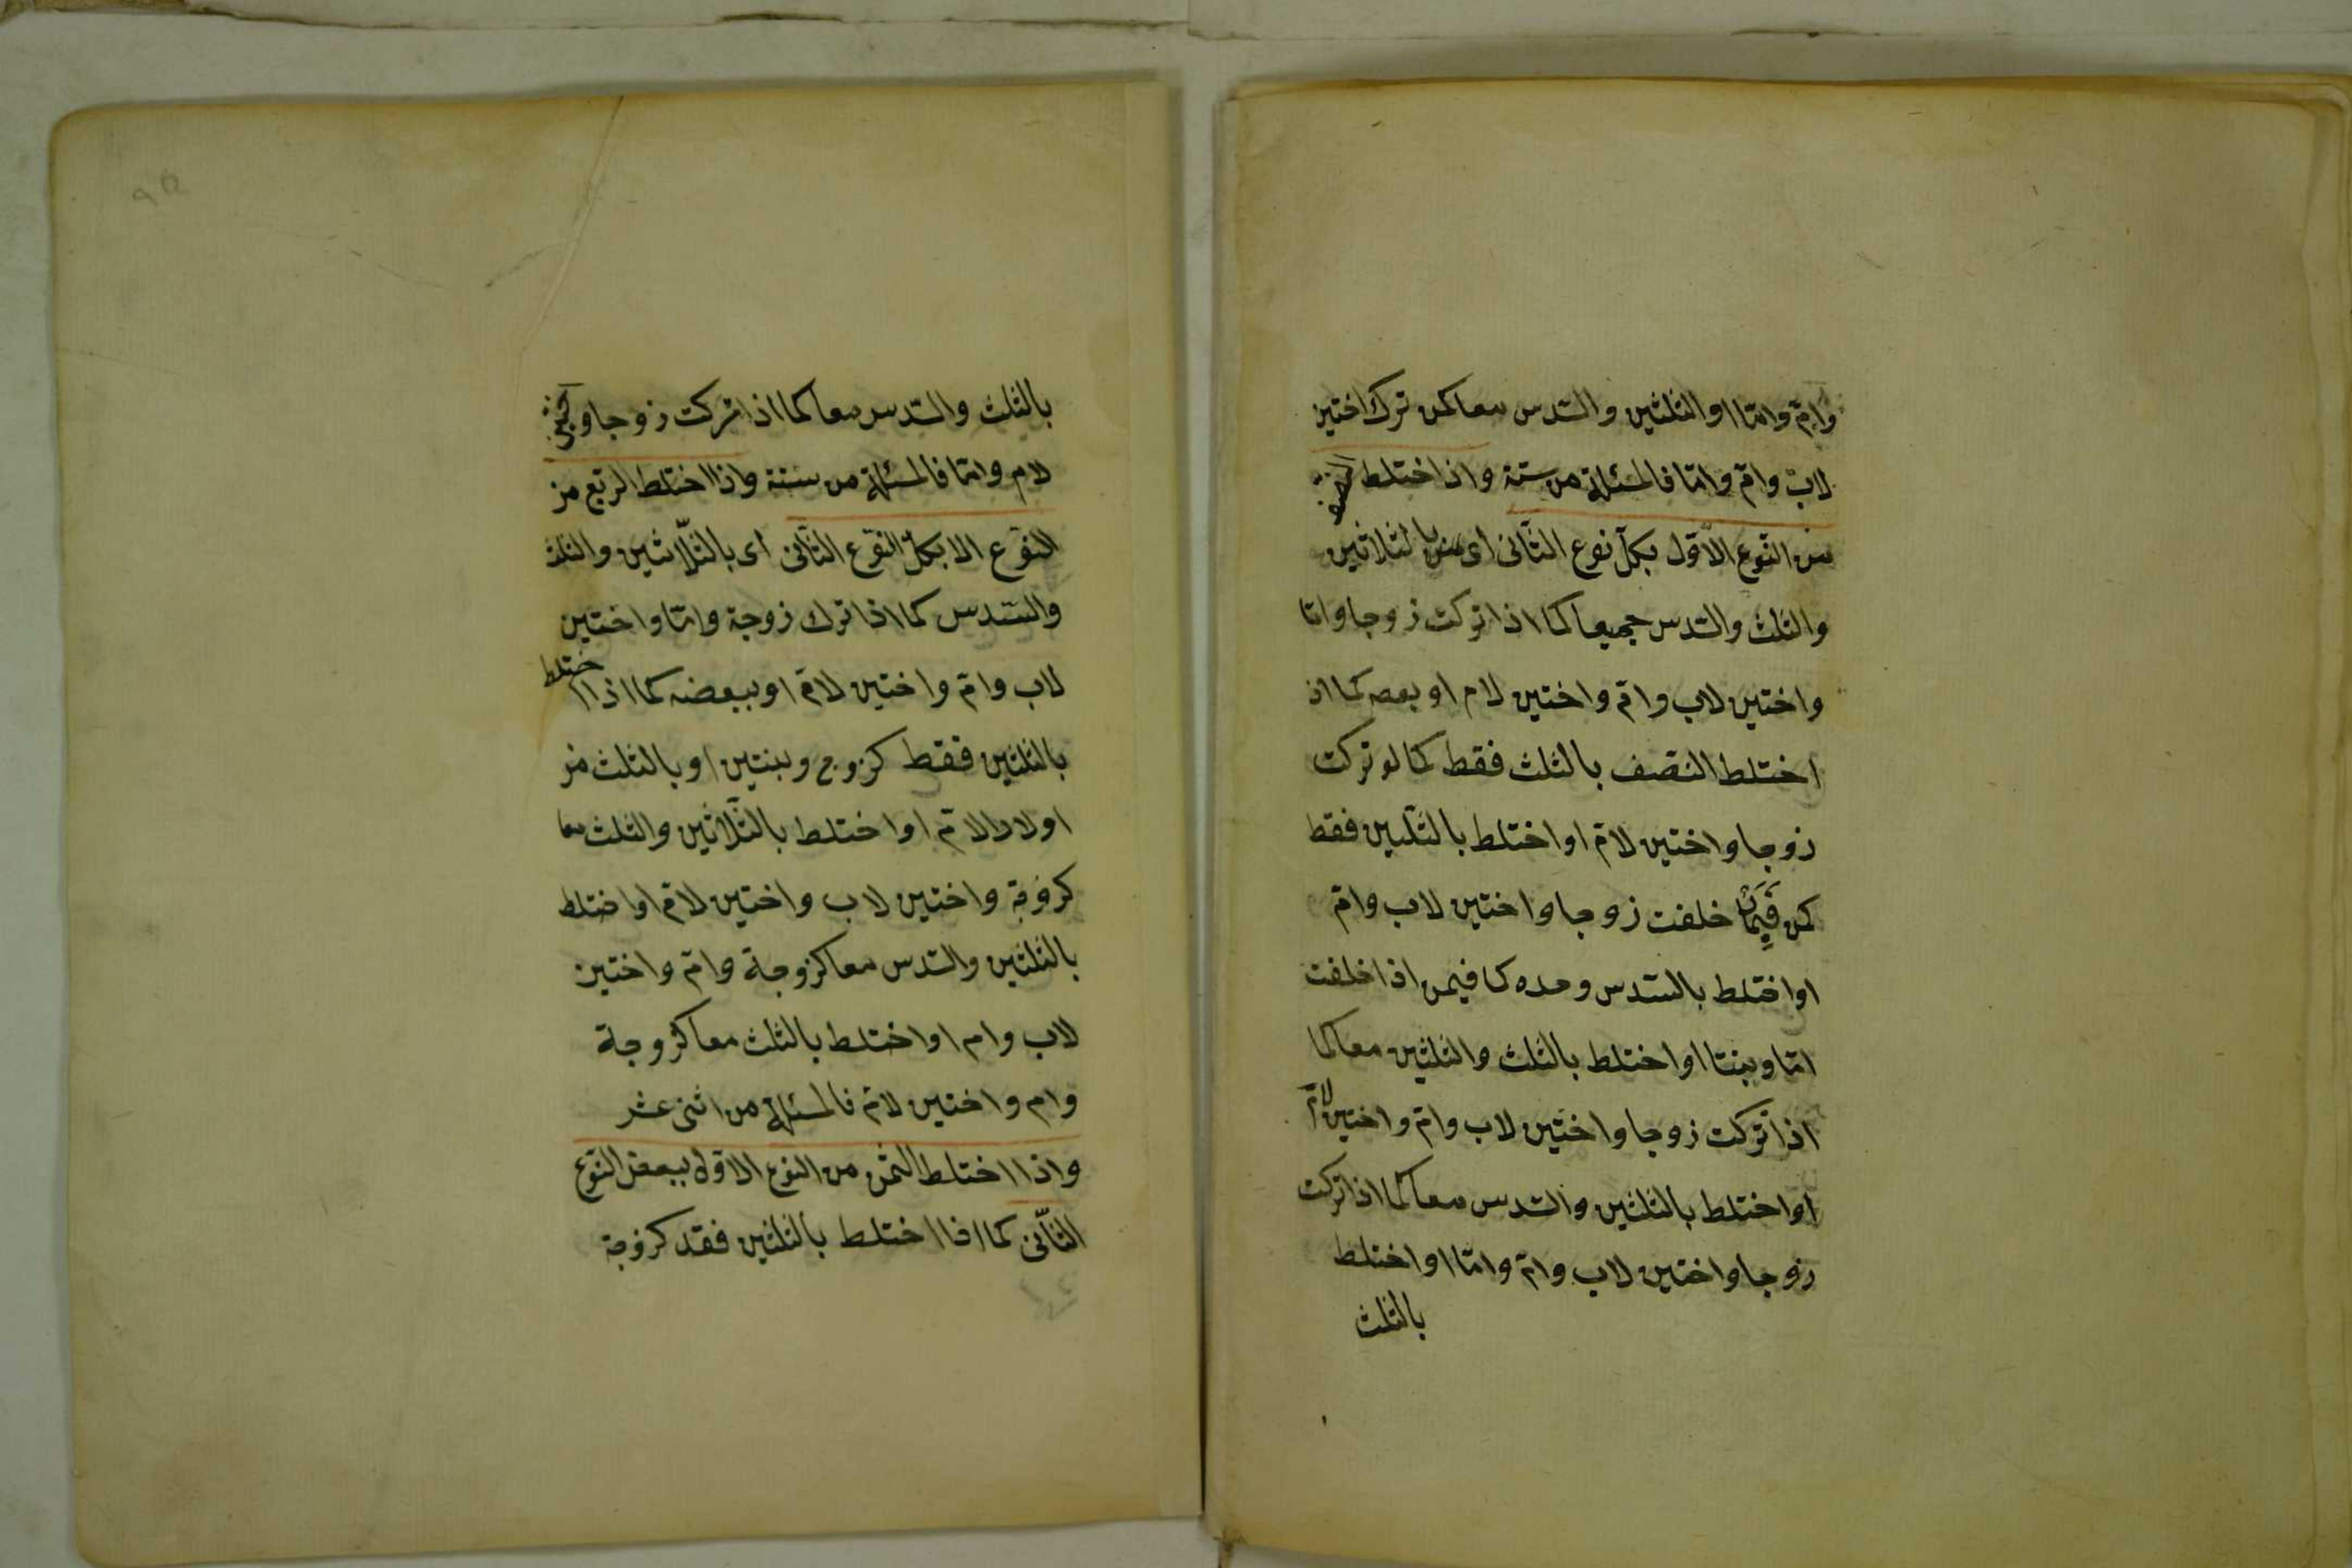 وام واما او الثلثين والسدس معا كمن ترك اختين
لاب وام واما فالمسئلة من ستة واذا اختلط النصف
من النوع الاول بكل نوع الثاني اى بالثلاثين
والثلث والسدس جميعا كما اذا تركت زوجا واما
واختين لاب وام واختين لام او بعصه كما اذ
اختلط النصف بالثلث فقط كما لو تركت
زوجا واختين لام او اختلط بالثلثين فقط
كمن فيما خلفت زوجا واختين لاب وام
او اختلط بالسدس وحده كما فيمن اذا خلفت
اما وبنتا او اختلط بالثلث والثلثين معا كما
اذا تركت زوجا واختين لاب وام واختين لام
او اختلط بالثلثين والسدس معا كما اذا تركت
زوجا واختين لاب وام واما او اختلط
بالثلث
بالثلث والسدس معا كما اذا تركت زوجا و
لام واما فالمسئلة من ستة واذا اختلط الربع من
النوع الا بكل النوع الثانى اى بالثلاثين والثلث
والسدس كما اذا ترك زوجة واما واختين
لاب وام واختين لام او ببعضه كما اذا اختلط
بالثلثين فقط كزوج وبنتين او بالثلث من
اولاد الام او اختلط بالثلاثين والثلث معا
كزوجة واختين لاب واختين لام او اختلط
بالثلثين والسدس معا كزوجة وام واختين
لاب وام او اختلط بالثلث معا كزوجة
وام واختين لام فالمسئلة من اثنى عشر
واذا اختلط الثمن من النوع الاول ببعض النوع
الثانى كما اذا اختلط بالثلثين فقد كزوجة